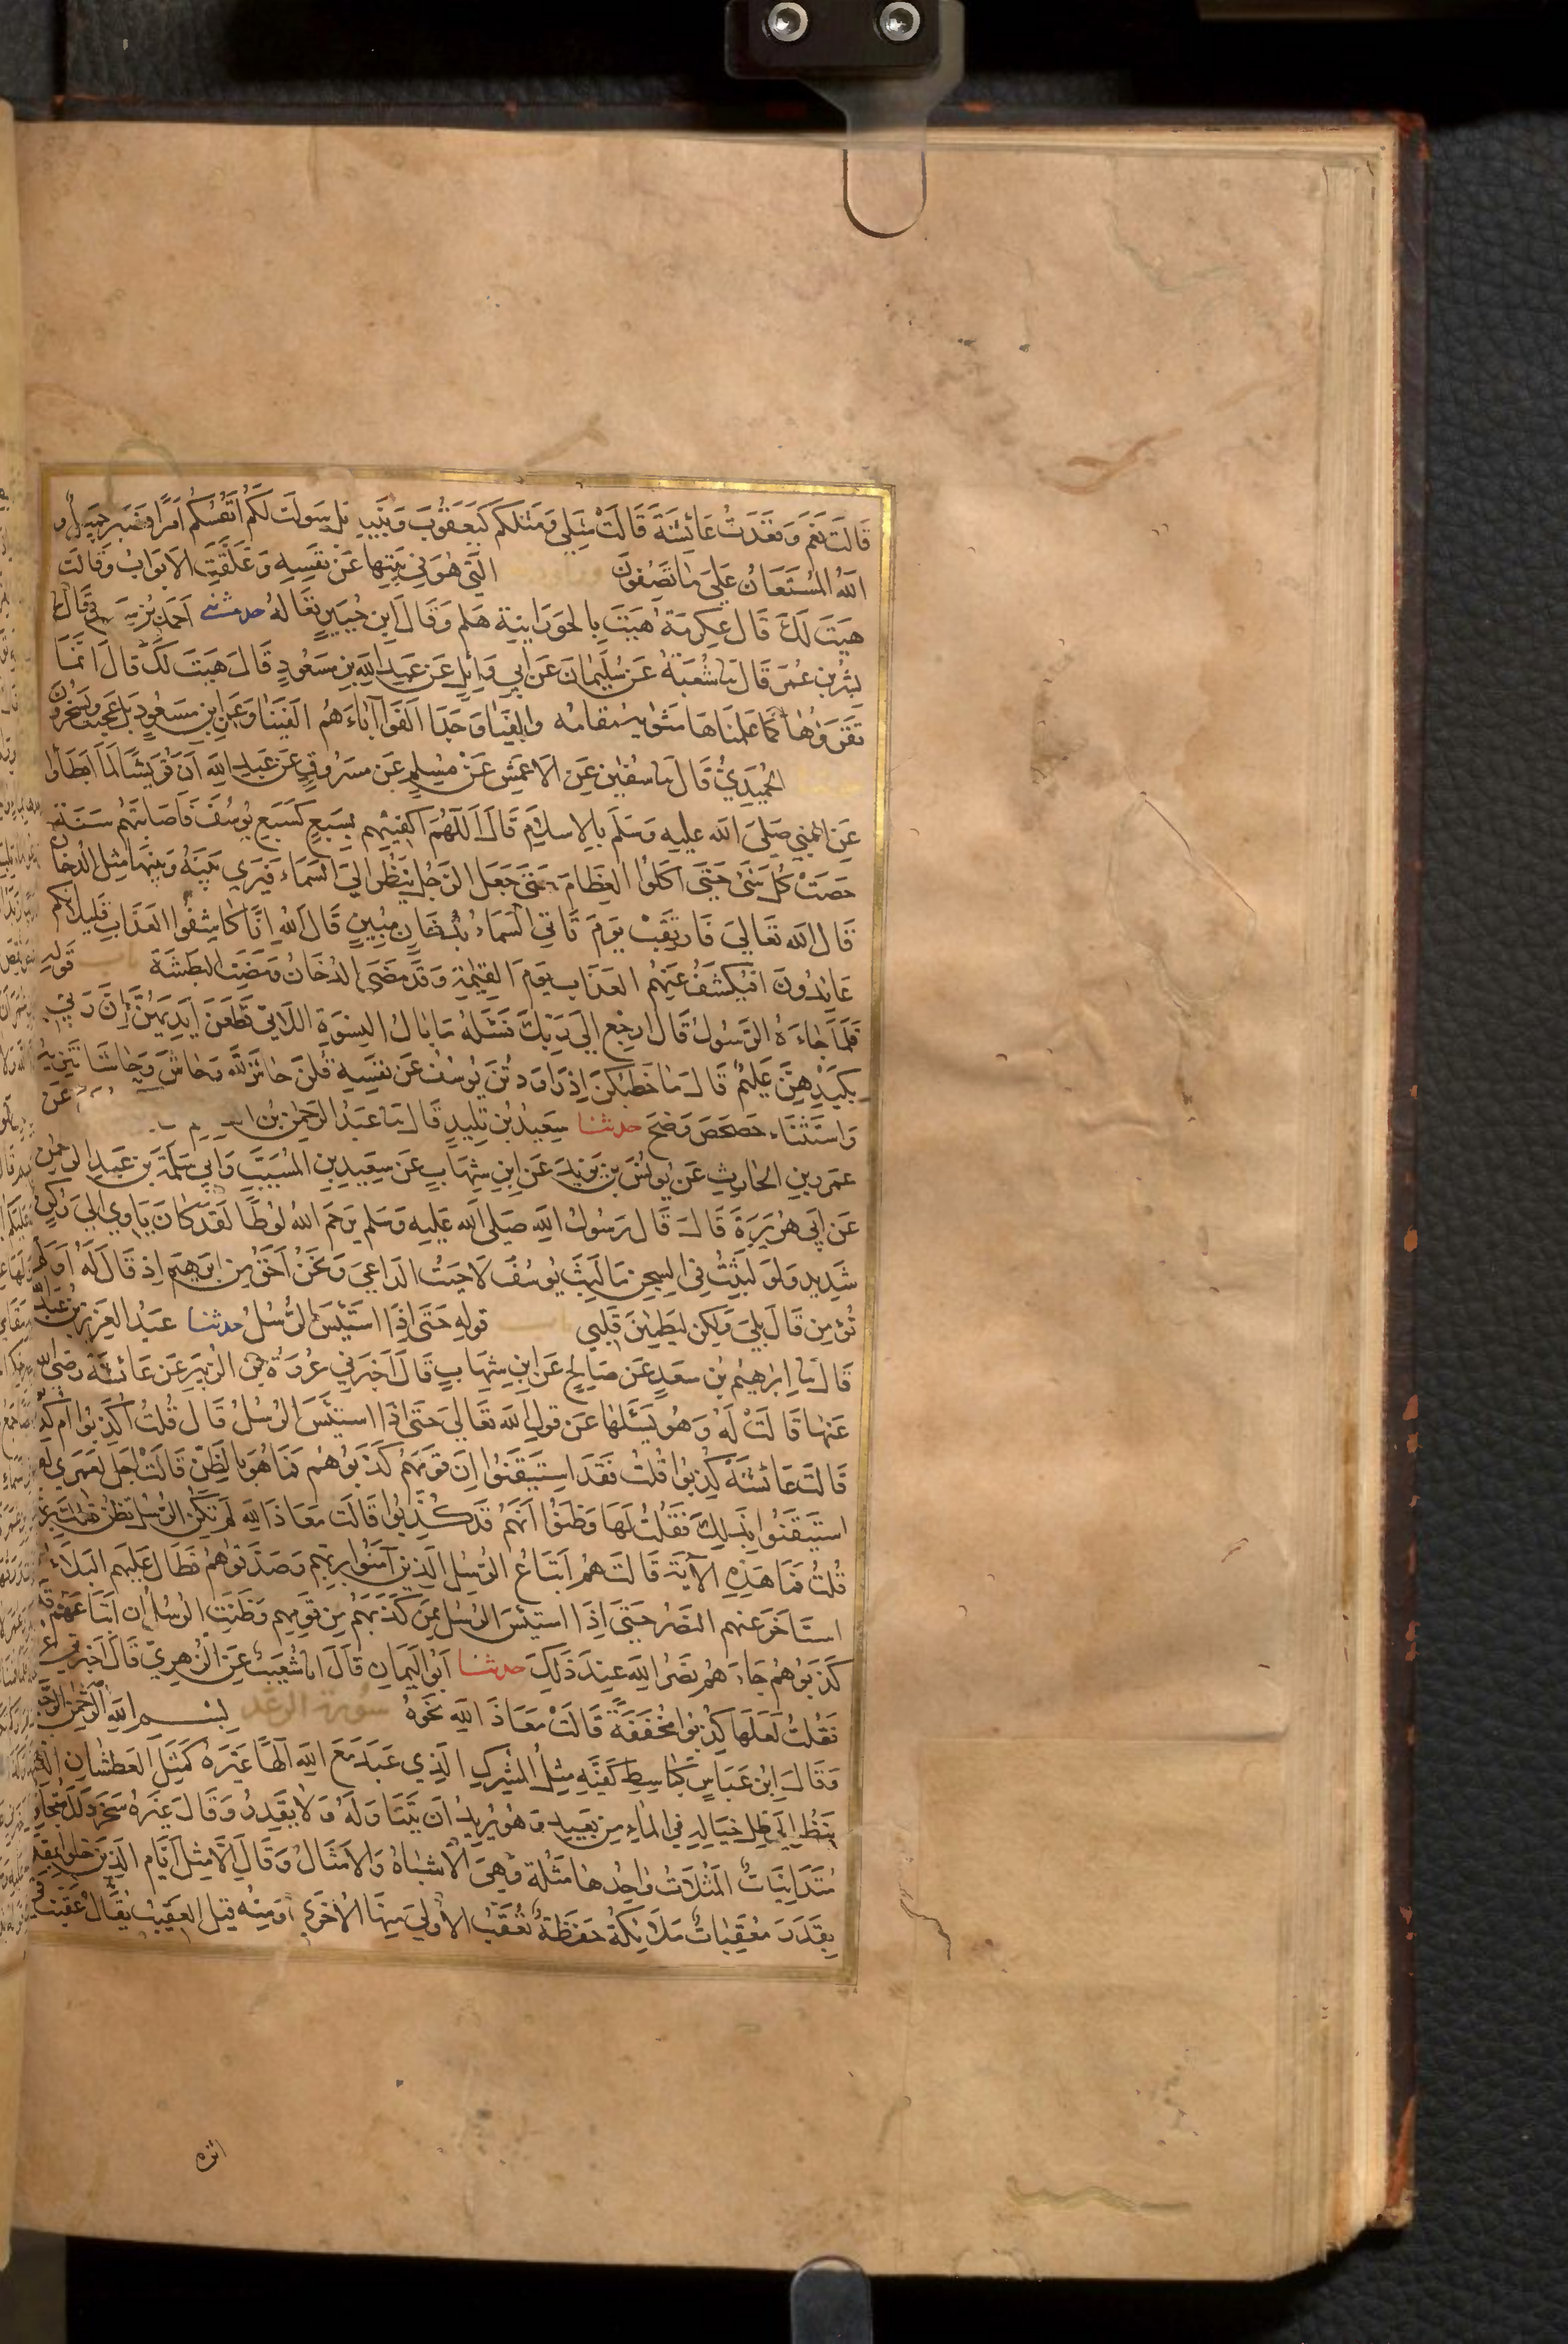 قَالَتْ نَعَمْ وَقَعَدَتْ عَائِشَةُ قَالَتْ مَثَلِي وَمَثَلُكُمْ كَيَعْقُوبَ وَبَنِيهِ بَلْ سَوَّلَتْ لَكُمْ أَنْفُسُكُمْ أَمْرًا فَصَبْرٌ جَمِيلٌ وَ
اللهُ الْمُسْتَعَانُ عَلَى مَا تَصِفُونَ الَّتِي هُوَ فِي بَيْتِهَا عَنْ نَفْسِهِ وَغَلَّقَتِ الْأَبْوَابَ وَقَالَتْ
هَيْتَ لَكَ قَالَ عِكْرِمَةُ هَيْتَ بِالْحَوْرَانِيَّةِ هَلُمَّ وَقَالَ ابْنُ جُبَيْرٍ تَعَالَهْ حدثني أَحْمَدُ بْنُ قَالَ
بِشْرُ بْنُ عُمَرَ قَالَ ثنا شُعْبَةُ عَنْ سُلَيْمَانَ عَنْ أَبِي وَائِلٍ عَنْ عَبْدِ اللهِ بْنِ مَسْعُودٍ قَالَ هَيْتَ لَكَ قَالَ إِنَّمَا
نَقْرَؤُهَا كَمَا عُلِّمْنَاهَا مَثْوَاهُ مُقَامُهُ وَأَلْفَيَا وَجَدَا أَلْفَوْا آبَاءَهُمْ أَلْفَيْنَا وَعَنِ ابْنِ مَسْعُودٍ بَلْ عَجِبْتُ وَيَسْخَرُونَ
الْحُمَيْدِيُّ قَالَ ثنا سُفْيٰنُ عَنِ الْأَعْمَشِ عَنْ مُسْلِمٍ عَنْ مَسْرُوقٍ عَنْ عَبْدِ اللهِ أَنَّ قُرَيْشًا لَمَّا أَبْطَأُوا
عَنِ النَّبِيِّ صَلَّى اللهُ عَلَيْهِ وَسَلَّمَ بِالْإِسْلَامِ قَالَ اللّٰهُمَّ اكْفِنِيهِمْ بِسَبْعٍ كَسَبْعِ يُوسُفَ فَأَصَابَتْهُمْ سَنَةٌ
حَصَّتْ كُلَّ شَيْءٍ حَتَّى أَكَلُوا الْعِظَامَ حَتَّى جَعَلَ الرَّجُلُ يَنْظُرُ إِلَى السَّمَاءِ فَيَرَى بَيْنَهُ وَبَيْنَهَا مِثْلَ الدُّخَانِ
قَالَ اللهُ تَعَالَى فَارْتَقِبْ يَوْمَ تَأْتِي السَّمَاءُ بِدُخَانٍ مُبِينٍ قَالَ اللهُ إِنَّا كَاشِفُوا الْعَذَابِ قَلِيلًا إِنَّكُمْ
عَائِدُونَ أَفَيُكْشَفُ عَنْهُمُ الْعَذَابُ يَوْمَ الْقِيٰمَةِ وَقَدْ مَضَى الدُّخَانُ وَمَضَتِ الْبَطْشَةُ باب قَوْلِهِ
فَلَمَّا جَاءَهُ الرَّسُولُ قَالَ ارْجِعْ إِلَى رَبِّكَ فَسْئَلْهُ مَا بَالُ النِّسْوَةِ اللَّاتِي قَطَّعْنَ أَيْدِيَهُنَّ إِنَّ رَبِّي
بِكَيْدِهِنَّ عَلِيمٌ قَالَ مَا خَطْبُكُنَّ إِذْ رَاوَدْتُنَّ يُوسُفَ عَنْ نَفْسِهِ قُلْنَ حَاشَ لِلَّهِ وَحَاشَ وَحَاشَا تَنْزِيهٌ
وَاسْتِثْنَاءٌ حَصْحَصَ وَضَحَ حدثنا سَعِيدُ بْنُ تَلِيدٍ قَالَ ثنا عَبْدُ الرَّحْمٰنِ بْنُ عَنْ
عَمْرِو بْنِ الْحَارِثِ عَنْ يُونُسَ بْنِ يَزِيدَ عَنِ ابْنِ شِهَابٍ عَنْ سَعِيدِ بْنِ الْمُسَيَّبِ وَأَبِي سَلَمَةَ بْنِ عَبْدِ الرَّحْمٰنِ
عَنْ أَبِي هُرَيْرَةَ قَالَ قَالَ رَسُولُ اللهِ صَلَّى اللهُ عَلَيْهِ وَسَلَّمَ يَرْحَمُ اللهُ لُوطًا لَقَدْ كَانَ يَأْوِي إِلَى رُكْنٍ
شَدِيدٍ وَلَوْ لَبِثْتُ فِي السِّجْنِ مَا لَبِثَ يُوسُفُ لَأَجَبْتُ الدَّاعِيَ وَنَحْنُ أَحَقُّ مِنْ إِبْرٰهِيمَ إِذْ قَالَ لَهُ أَوَلَمْ
تُؤْمِنْ قَالَ بَلَى وَلٰكِنْ لِيَطْمَئِنَّ قَلْبِي باب قَوْلِهِ حَتَّى إِذَا اسْتَيْئَسَ الرُّسُلُ حدثنا عَبْدُ الْعَزِيزِ بْنُ عَبْدِ اللهِ
قَالَ ثنا إِبْرٰهِيمُ بْنُ سَعْدٍ عَنْ صَالِحٍ عَنِ ابْنِ شِهَابٍ قَالَ أَخْبَرَنِي عُرْوَةُ بْنُ الزُّبَيْرِ عَنْ عَائِشَةَ رَضِيَ اللهُ
عَنْهَا قَالَتْ لَهُ وَهُوَ يَسْئَلُهَا عَنْ قَوْلِ اللهِ تَعَالَى حَتَّى إِذَا اسْتَيْئَسَ الرُّسُلُ قَالَ قُلْتُ أَكُذِبُوا أَمْ كُذِّ
قَالَتْ عَائِشَةُ كُذِّبُوا قُلْتُ فَقَدِ اسْتَيْقَنُوا أَنَّ قَوْمَهُمْ كَذَّبُوهُمْ فَمَا هُوَ بِالظَّنِّ قَالَتْ أَجَلْ لَعَمْرِي لَقَدِ
اسْتَيْقَنُوا بِذٰلِكَ فَقُلْتُ لَهَا وَظَنُّوا أَنَّهُمْ قَدْ كُذِبُوا قَالَتْ مَعَاذَ اللهِ لَمْ تَكُنِ الرُّسُلُ تَظُنُّ ذٰلِكَ بِرَ
قُلْتُ فَمَا هَذِهِ الْآيَةُ قَالَتْ هُمْ أَتْبَاعُ الرُّسُلِ الَّذِينَ آمَنُوا بِرَبِّهِمْ وَصَدَّقُوهُمْ فَطَالَ عَلَيْهِمُ الْبَلَاءُ وَ
اسْتَأْخَرَ عَنْهُمُ النَّصْرُ حَتَّى إِذَا اسْتَيْئَسَ الرُّسُلُ مِمَّنْ كَذَّبَهُمْ مِنْ قَوْمِهِمْ وَظَنَّتِ الرُّسُلُ أَنَّ أَتْبَاعَهُمْ قَدْ
كَذَّبُوهُمْ جَاءَهُمْ نَصْرُ اللهِ عِنْدَ ذَلِكَ حدثنا أَبُو الْيَمَانِ قَالَ أنا شُعَيْبٌ عَنِ الزُّهْرِيِّ قَالَ أَخْبَرَنِي عُ
فَقُلْتُ لَعَلَّهَا كُذِبُوا مُخَفَّفَةً قَالَتْ مَعَاذَ اللهِ نَحْوَهُ سورة الرعد بِسْمِ اللهِ الرَّحْمٰنِ الرَّحِيمِ
وَقَالَ ابْنُ عَبَّاسٍ كَبَاسِطِ كَفَّيْهِ مِثْلُ الْمُشْرِكِ الَّذِي عَبَدَ مَعَ اللهِ إِلٰهًا غَيْرَهُ كَمَثَلِ الْعَطْشَانِ الَّذِي
يَنْظُرُ إِلَى ظِلِّ خَيَالِهِ فِي الْمَاءِ مِنْ بَعِيدٍ وَهُوَ يُرِيدُ أَنْ يَتَنَاوَلَهُ وَلَا يَقْدِرُ وَقَالَ غَيْرُهُ سَخَّرَ ذَلَّلَ مُتَجَاوِ
مُتَدَانِيَاتٌ الْمَثُلَاتُ وَاحِدُهَا مَثُلَةٌ وَهِيَ الْأَشْبَاهُ وَالْأَمْثَالُ وَقَالَ إِلَّا مِثْلَ أَيَّامِ الَّذِينَ خَلَوْا بِمِقْدَ
بِقَدَرٍ مُعَقِّبَاتٌ مَلَائِكَةٌ حَفَظَةٌ تُعَقِّبُ الْأُولَى مِنْهَا الْأُخْرَى وَمِنْهُ قِيلَ الْعَقِيبُ يُقَالُ عَقَّبْتُ فِي
اثره